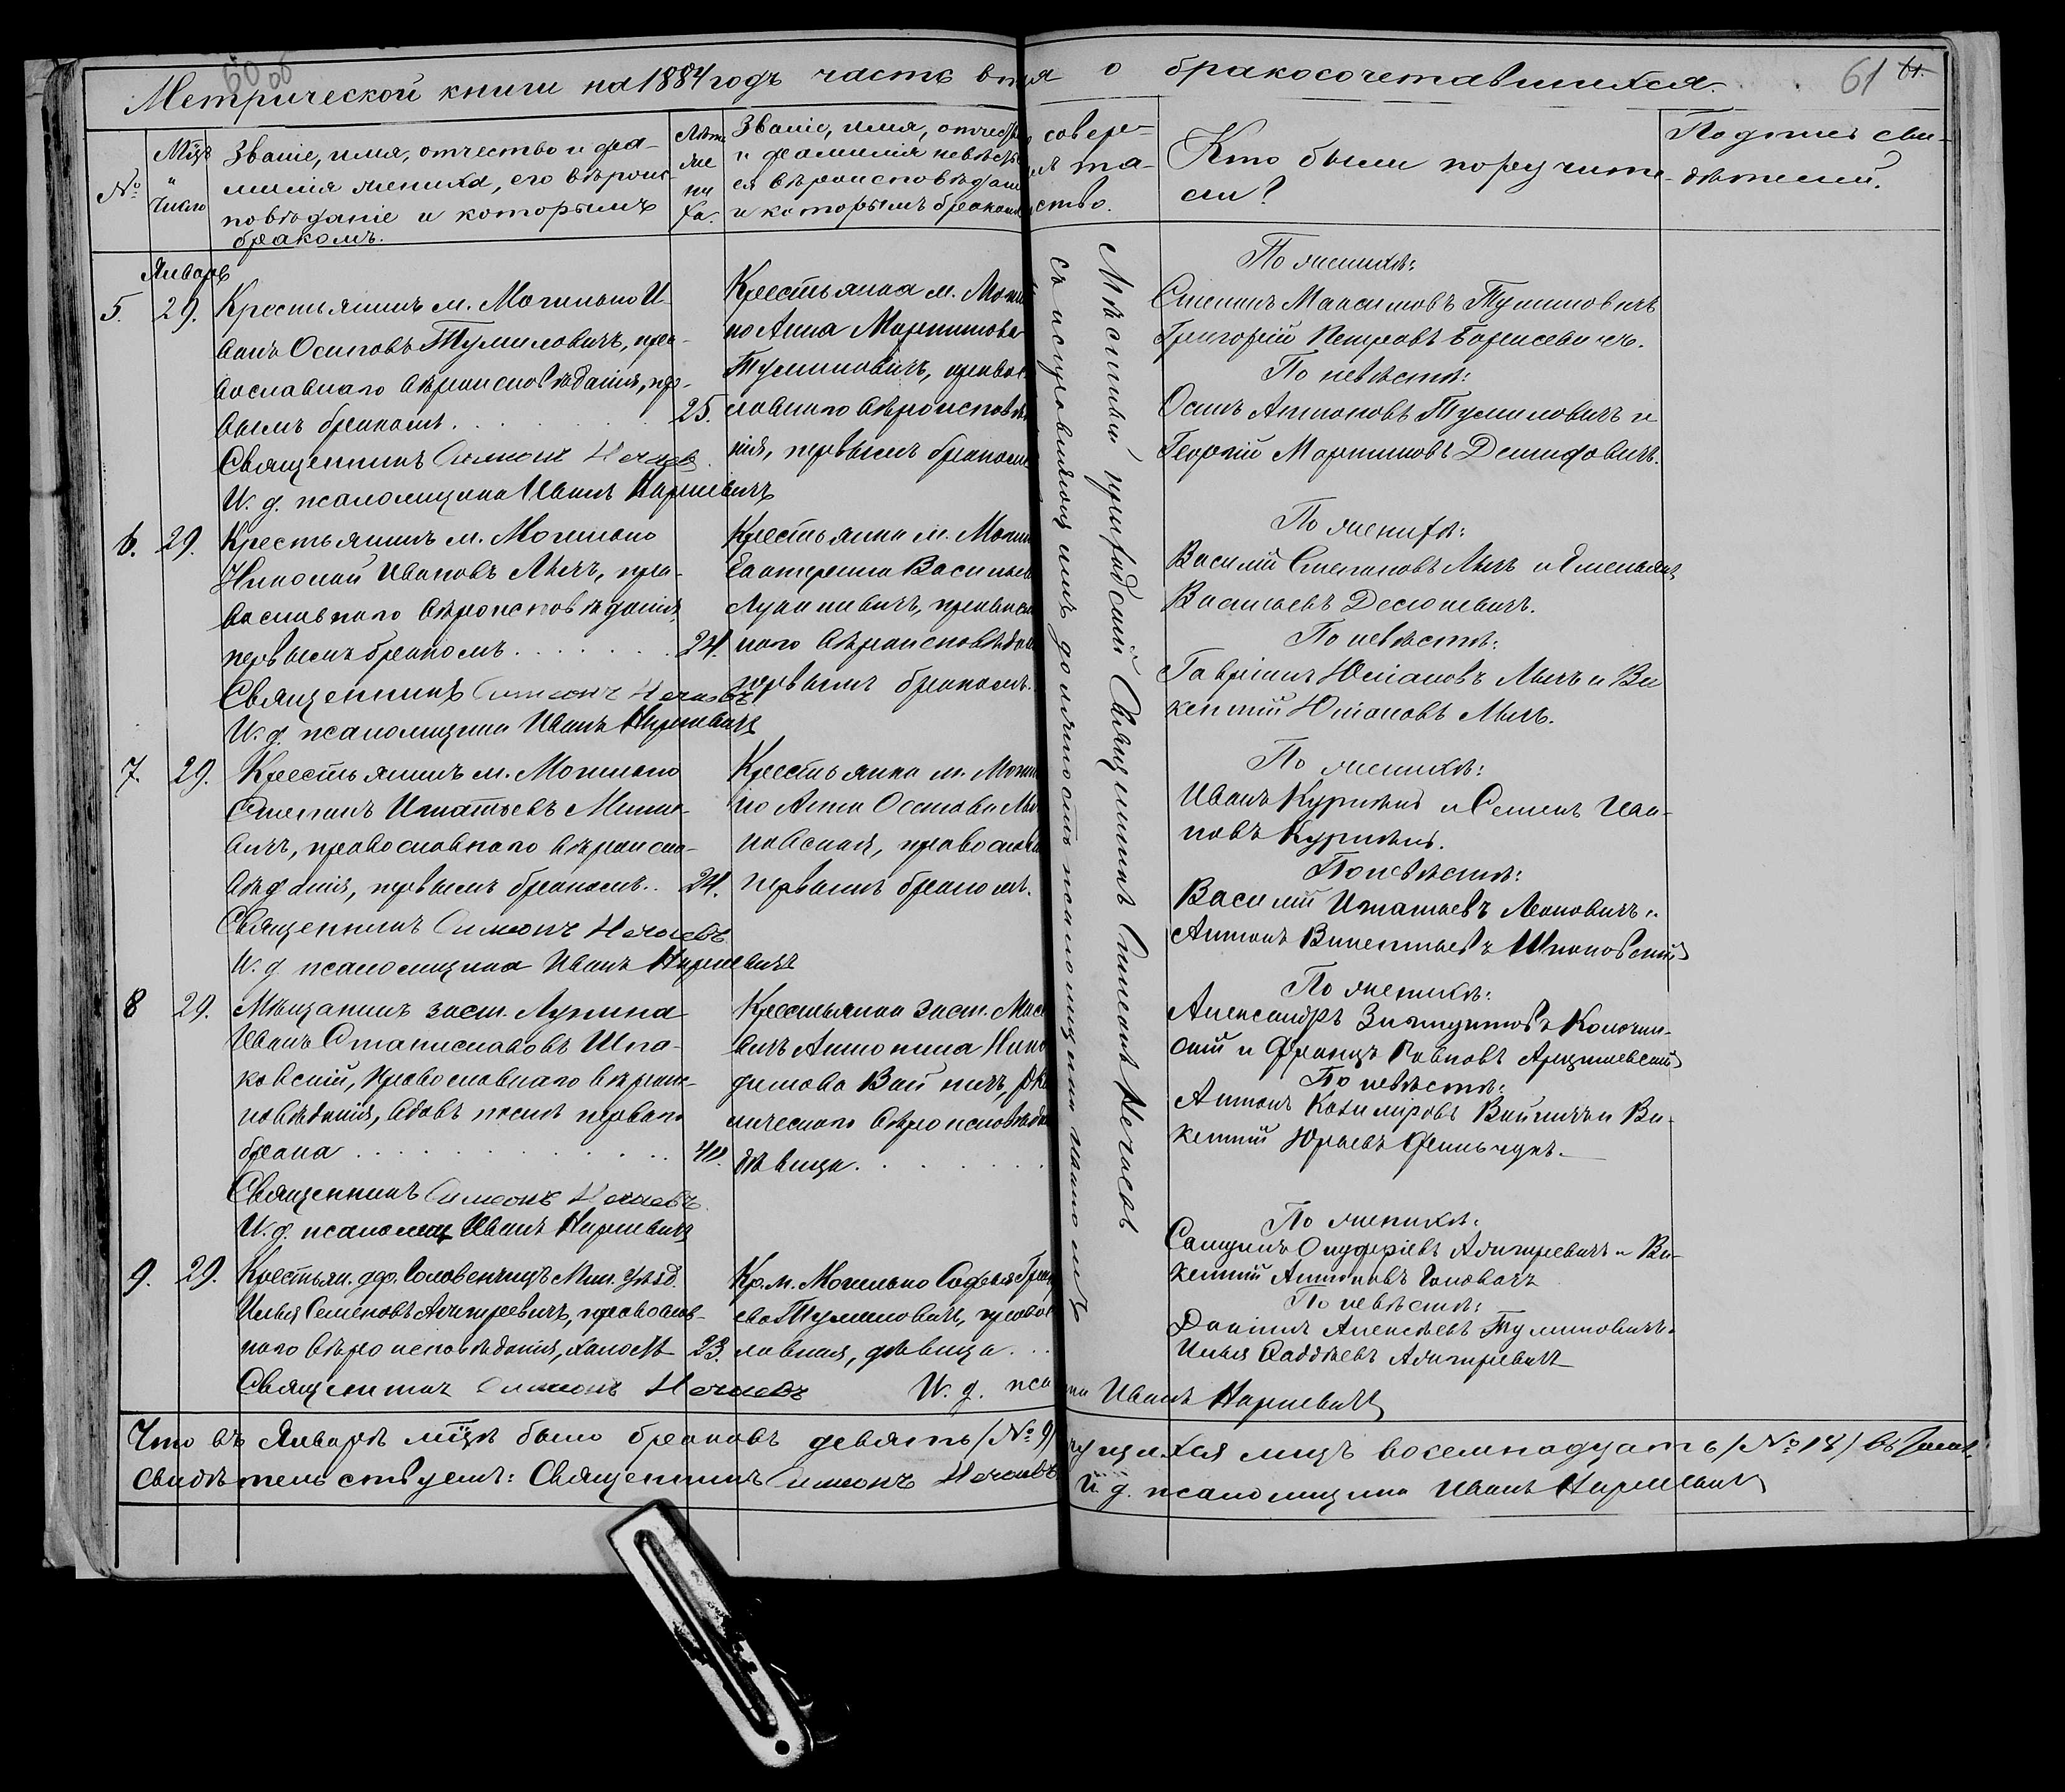 60 об
Метрической книги на 1884 годъ часть втя о бракосочетавшихся.
61
№
Мцъ и число
Званіе, имя, отчество и фа-
милія жениха, его вѣроис-
повѣданіе и которымъ
бракомъ.
Лѣта
же
ни
ха.
Званіе, имя, отчеств
и фамилія невѣсты
ея вѣроисповѣдан
и которымъ бракомъ
совер-
та-
ство.
Кто были поручите-
ли?
Подпись сви-
дѣтелей.
Январь
5. 29.
Крестьянинъ м. Могильно И-
ванъ Осиповъ Тумиловичъ, пра-
вославнаго вѣроисповѣданія, пер-
вымъ бракомъ. 25.
Священникъ Симеонъ Нечаевъ
И. д. псаломщика Иванъ Наркевичъ
Крестьянка м. Моги
но Анна Мартинова
Тумиловичъ, правос
лавнаго вѣроисповѣ
нія, первымъ бракомъ
По женихѣ:
Степанъ Максимовъ Тумиловичъ
Григорій Петровъ Борисевичъ.
По невѣстѣ:
Осипъ Антоновъ Тумиловичъ и
Георгій Мартиновъ Демидовичъ.
6. 29.
Крестьянинъ м. Могильно
Николай Ивановъ Лычъ, пра-
вославнаго вѣроисповѣданія
первымъ бракомъ 24.
Священникъ Симеонъ Нечаевъ
И. д. псаломщика Иванъ Наркевичъ
Крестьянка м. Могил
Екатерина Василье
Лукашевичъ, правосл
наго вѣроисповѣдан
первымъ бракомъ.
По жениху:
Василій Степановъ Лычъ и Емельянъ
Васильевъ Десюкевичъ.
По невѣстѣ:
Гавріилъ Юліановъ Лычъ и Ви
кентій Юліановъ Лычъ.
7. 29.
Крестьянинъ м. Могильно
Степанъ Игнатьевъ
вичъ, православнаго вѣроиспо-
вѣданія, первымъ бракомъ. 24.
Священникъ Симеонъ Нечаевъ
И. д. псаломщика Иванъ Наркевичъ
Крестьянка м. Моги
но Анна Осипова
новская, правосла
первымъ бракомъ.
По женихѣ:
Иванъ и Семенъ Ива-
новъ
По невѣстѣ:
Василій Игнатьевъ Леоновичъ и
Антонъ Викентьевъ Шпаковскій
8 29.
Мѣщанинъ заст.
Иванъ Станиславовъ Шпа-
ковскій, Православнаго вѣроис-
повѣданія, вдовъ послѣ перваго
брака 40.
Священникъ Симеонъ Нечаевъ
И. д. псаломщ Иванъ Наркевичъ
Крестьянка заст.
вичъ Антонина Нико
димова Войничъ, Рим
лическаго вѣроисповѣда
дѣвица.
По женихѣ:
Александръ Зигмунтовъ
скій и Францъ Павловъ Арцишевскій
По невѣстѣ:
Антонъ Казиміровъ Войничъ и Ви-
кентій Юрьевъ
9. 29.
Крестьян. дер. Соловенчицъ Мин. уѣзд.
Илья Семеновъ Ахитревичъ, православ-
наго вѣроисповѣданія, холостъ 23.
Священникъ Симеонъ Нечаевъ
Кр. м. Могильно Софья Григ
ева Тумиловичъ, правос
лавная, дѣвица
И. д. пса ка Иванъ Наркевичъ
По женихѣ:
Самуилъ Онуфріевъ Ахитревичъ и Ви-
кентій Антоновъ Головачъ
По невѣстѣ:
Даніилъ Алексѣевъ Тумиловичъ и
Илья Фаддѣевъ Ахитревичъ
Мѣстный приходскій Священникъ Симеонъ Нечаевъ
съ исправляющимъ должность псаломщика
Что въ Январѣ мцѣ было браковъ девять (№ 9) щихся лицъ восемнадцать (№ 18) въ томъ
свидѣтельствуемъ: Священникъ Симеонъ Нечаевъ И. д. псаломщика Иванъ Наркевичъ